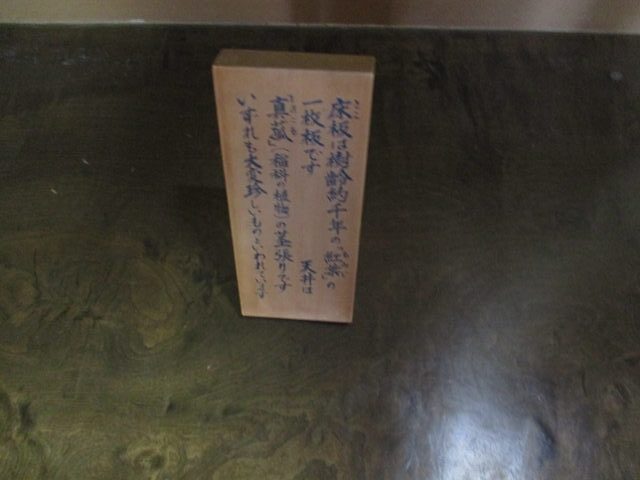 床板は樹齢約千年の"紅葉"の
一枚板です 天井は
"真菰"(稲科の植物)の茎張りです
いずれも大変珍しいものといわれています